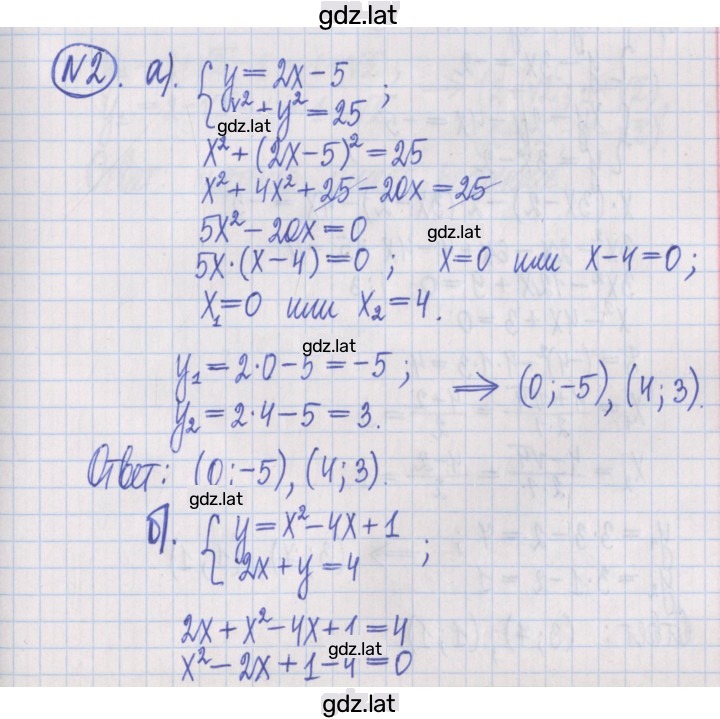 gdz.lat
№2. а). { y = 2x − 5
x² + y² = 25 ;
gdz.lat
x² + (2x − 5)² = 25
x² + 4x² + 25 − 20x = 25
5x² − 20x = 0
gdz.lat
5x·(x − 4) = 0 ; x = 0 или x − 4 = 0 ;
x₁ = 0 или x₂ = 4.
gdz.lat
y₁ = 2·0 − 5 = −5 ;
y₂ = 2·4 − 5 = 3.
⟹ (0 ; −5), (4 ; 3).
Ответ: (0 ; −5), (4 ; 3).
gdz.lat
б). { y = x² − 4x + 1
2x + y = 4 ;
2x + x² − 4x + 1 = 4
gdz.lat
x² − 2x + 1 − 4 = 0
gdz.lat